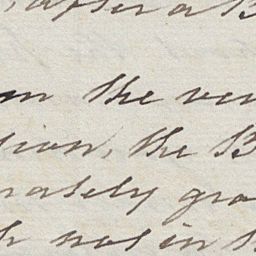 after a B
m the ven
tion, the B
rately gra
h not in t